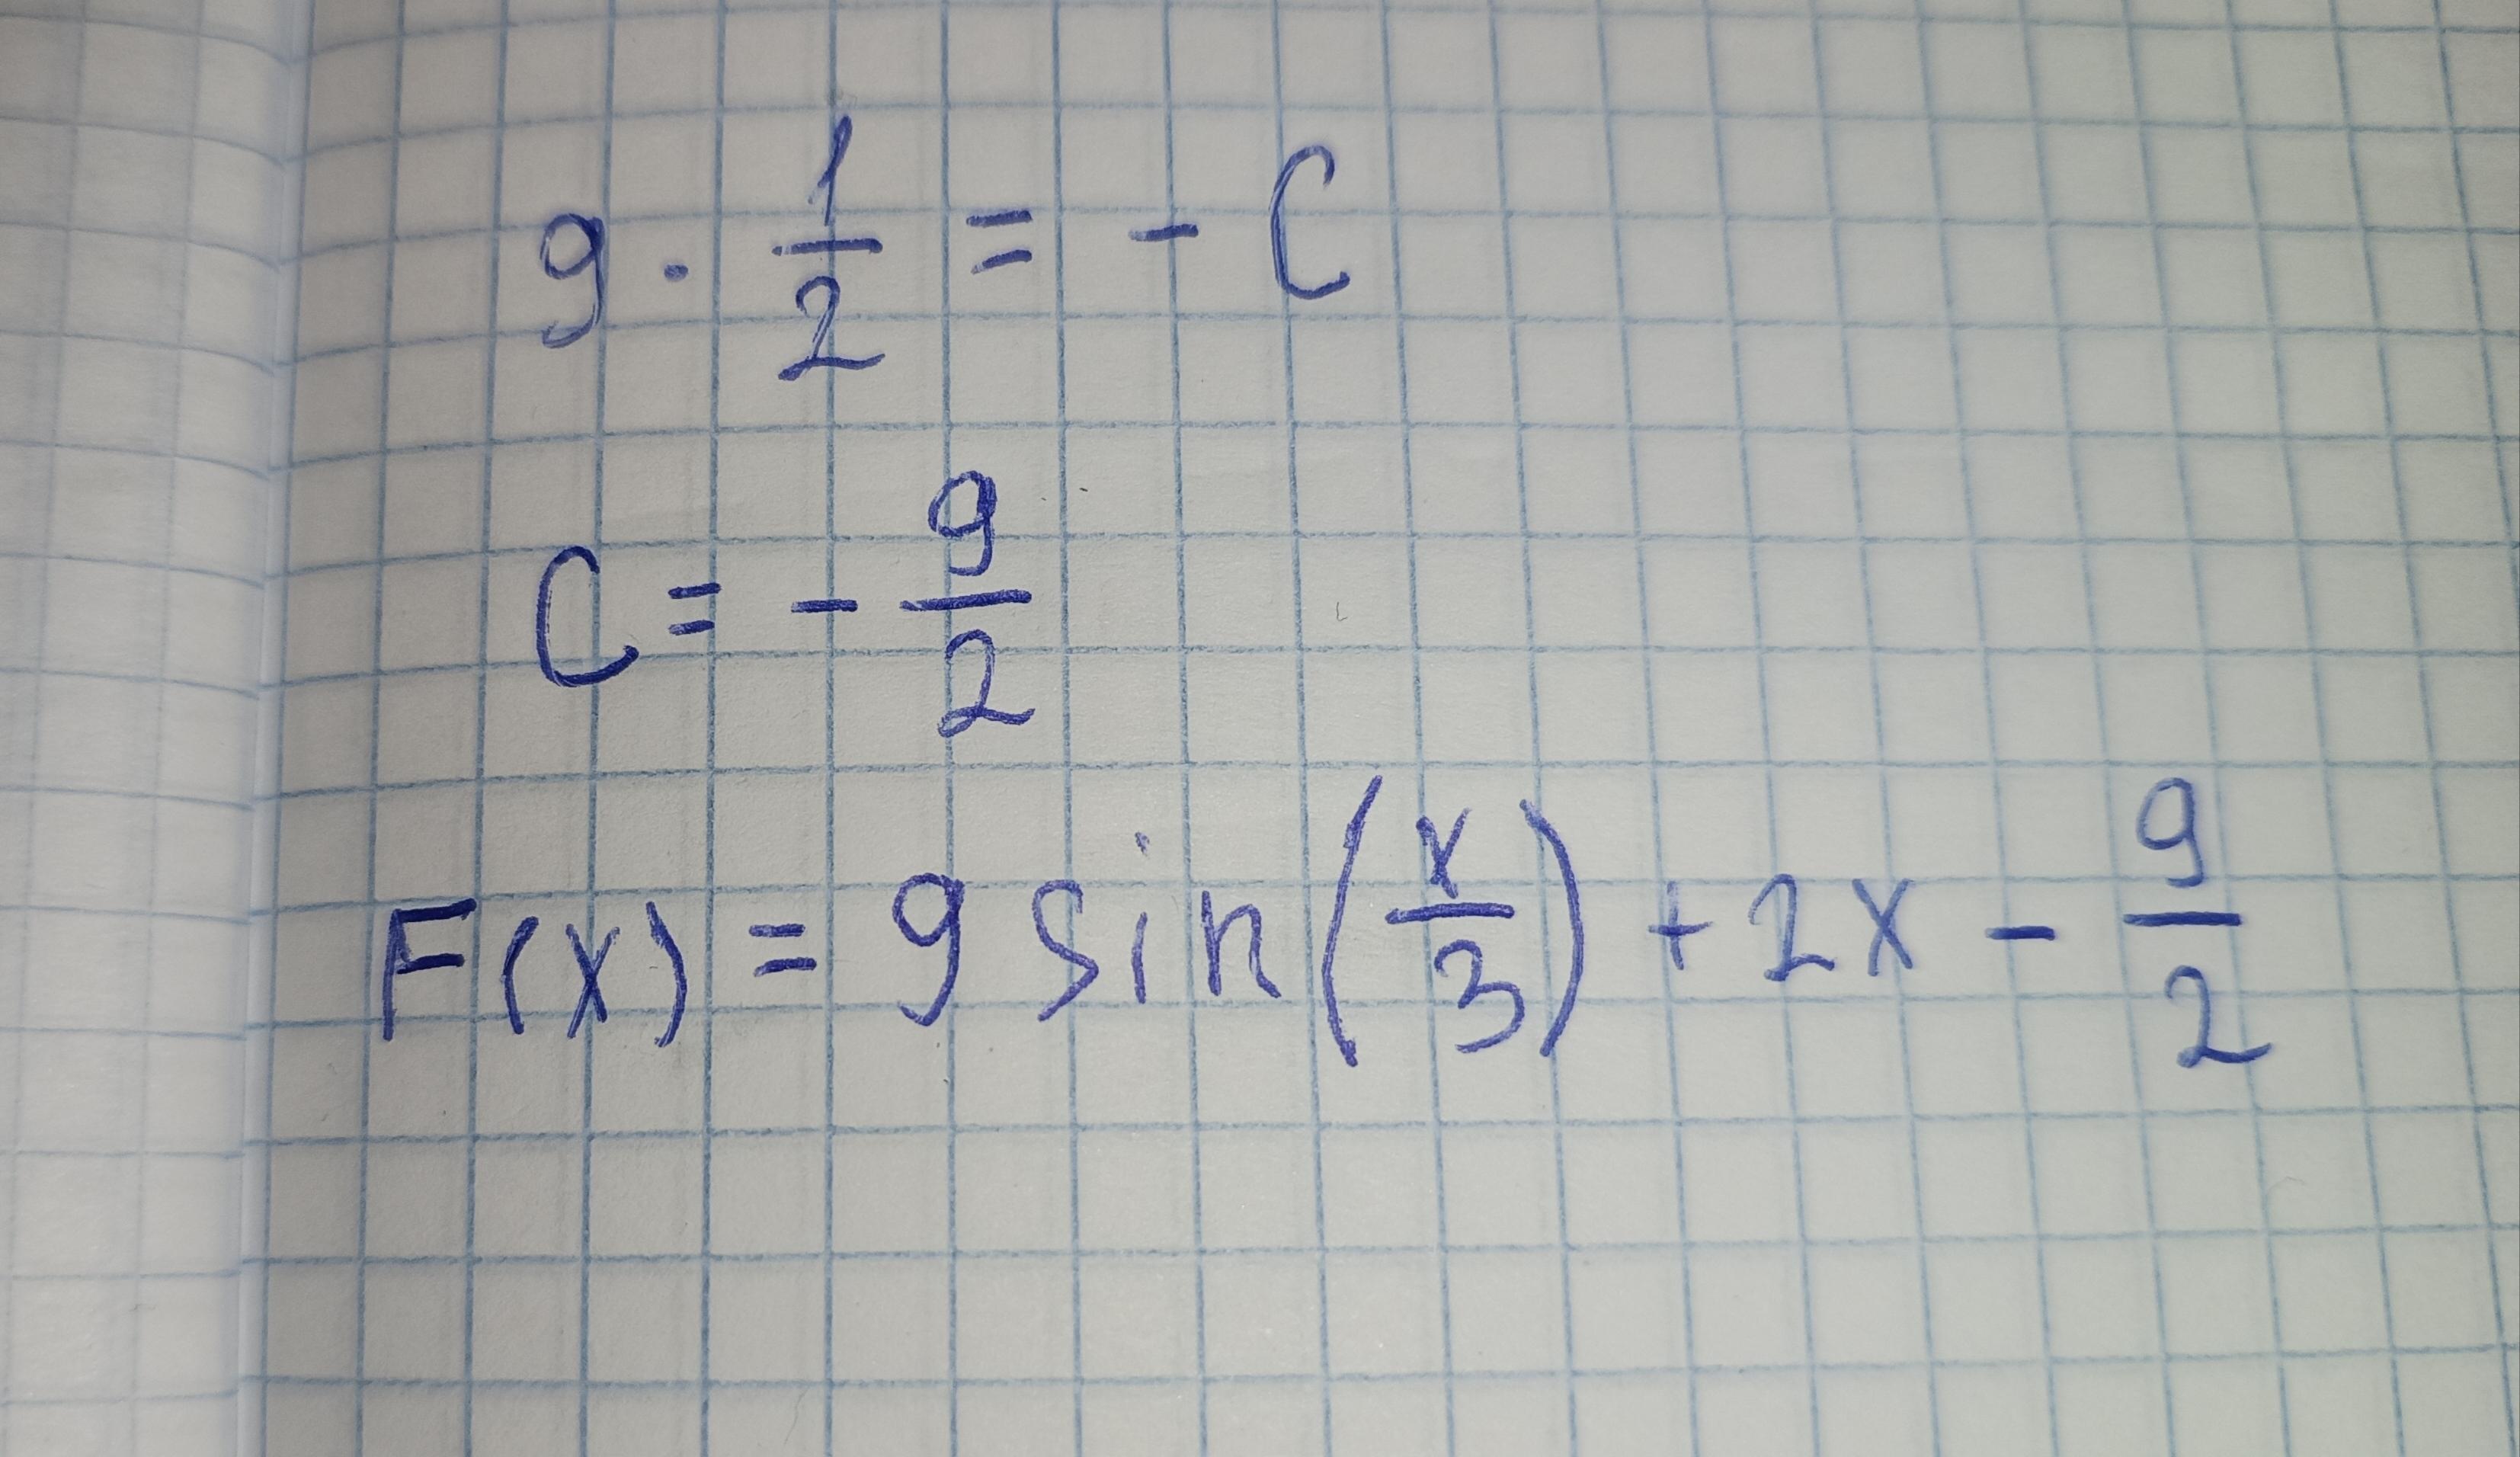 9 · 1/2 = - C
C = - 9/2
F(x) = 9 sin(x/3) + 2x - 9/2